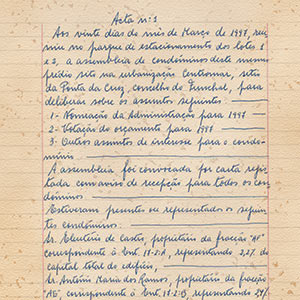 Acta nº 1
Aos vinte dias do mês de Março de 1997, reu-
niu no parque de estacionamento dos lotes 1
e 2, a assembleia de condóminos deste mesmo
prédio sito na urbanização Centromar, sito
da Ponta da Cruz, concelho do Funchal, para
deliberar sobre os assuntos seguintes:
1- Nomeação da Administração para 1997
2- Votação do orçamento para 1997
3- Outros assuntos de interesse para o condo-
mínio
A assembleia foi convocada por carta regis-
tada com aviso de recepção para todos os con-
dóminos
Estiveram presentes ou representados os seguin-
tes condóminos:
Sr. Eleutério de Castro, proprietário da fracção "AF"
correspondente à Ent. 18-2-A, representando 2,27% do
capital total do edifício,
Sr. António Maria dos Ramos, proprietário da fracção
correspondente à Ent. 18-2-B, representando